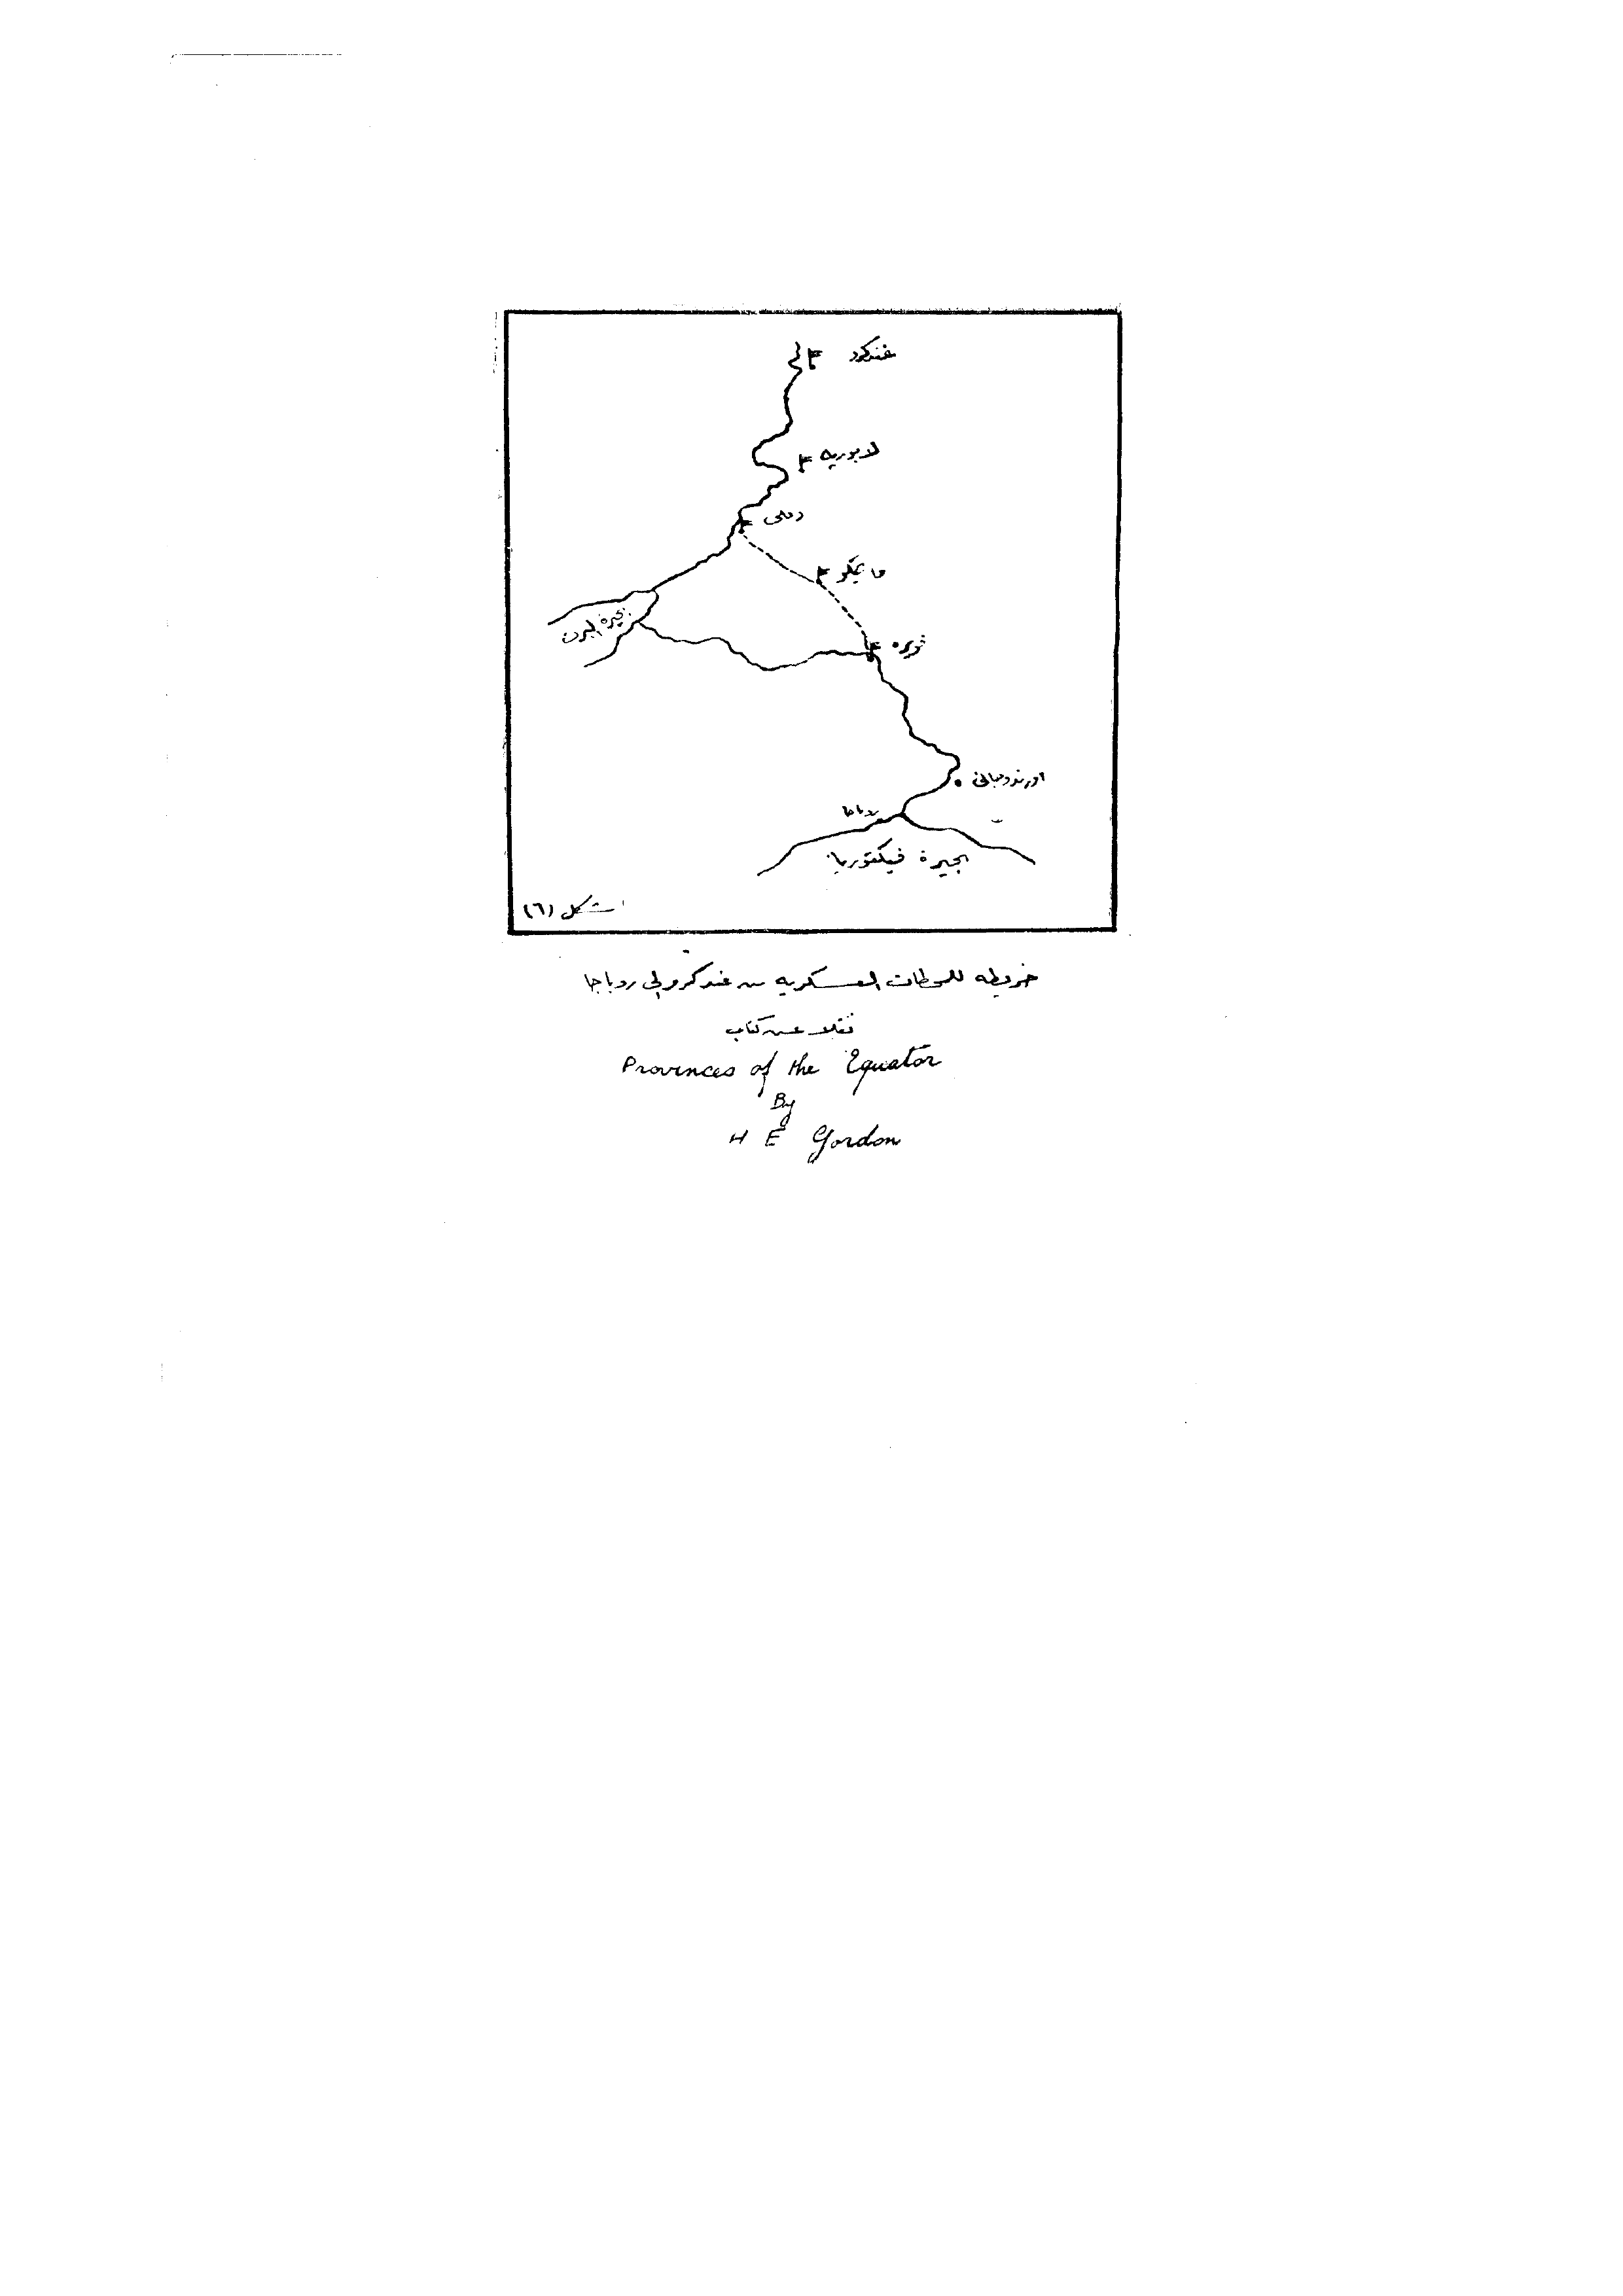 غندكرو
لابوريه
دفلى
فاتيكو
فويره
بحيرة البرت
اورندوجانى
روباجا
بحيرة فيكتوريا
شكل (٦)
خريطه للمحطات العسكريه من غندكرو الى روباجا
نقلا عن كتاب
Provinces of the Equator
By
H E Gordon